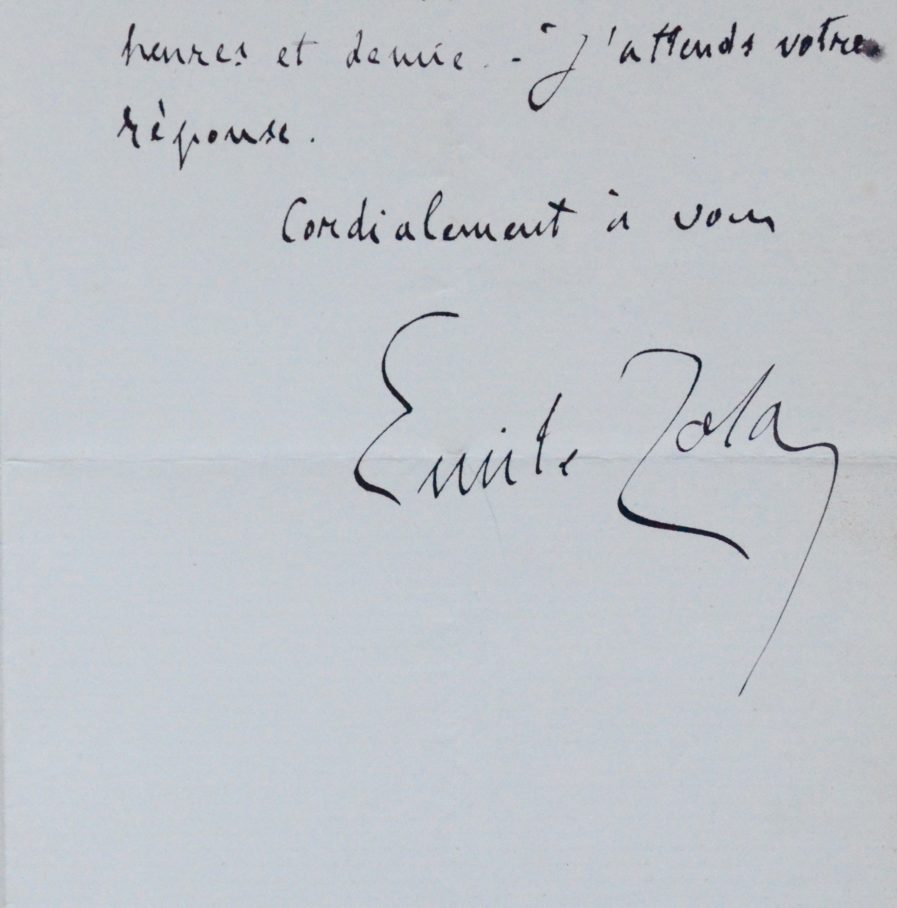 heures et demie. - J'attends votre
réponse.
Cordialement à vous
Emile Zola